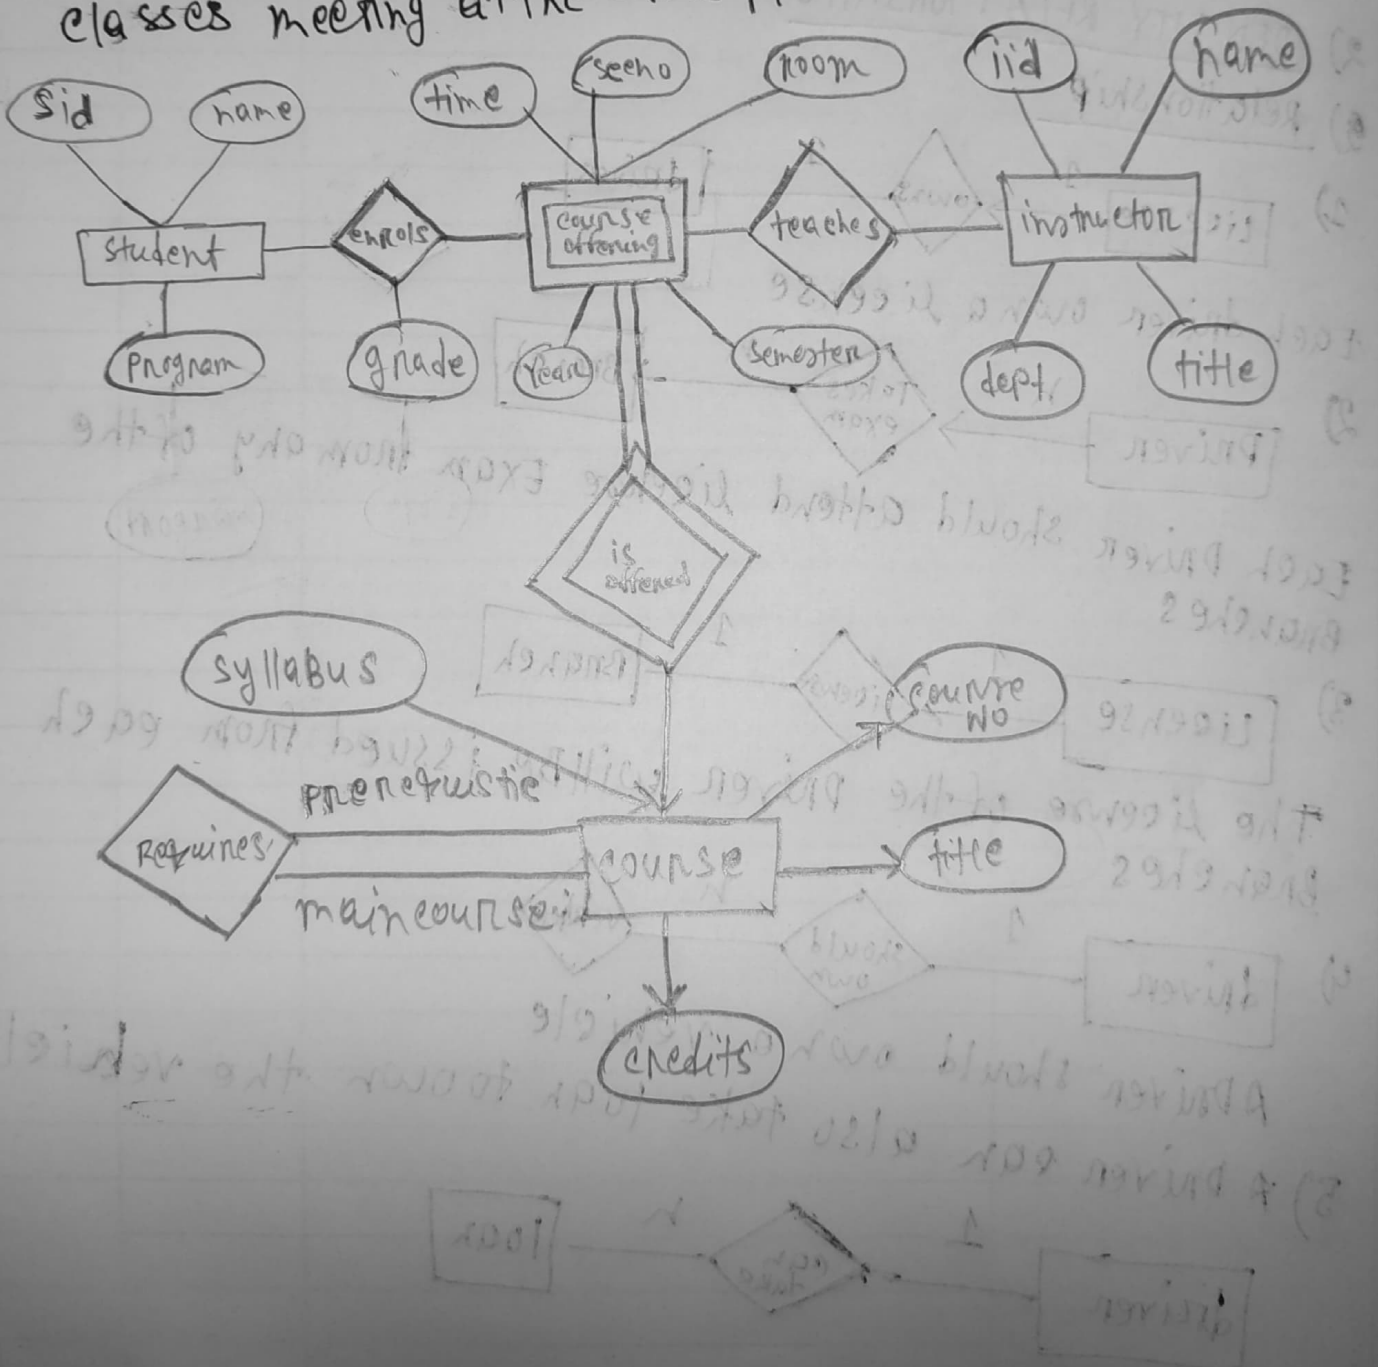 classes meeting at the
sid
name
time
secno
room
iid
name
student
enrols
course
offering
teaches
instructor
program
grade
Year
semester
dept.
title
is
offered
syllaBus
course
No
prerequistic
Requires
course
title
maincourse
credits